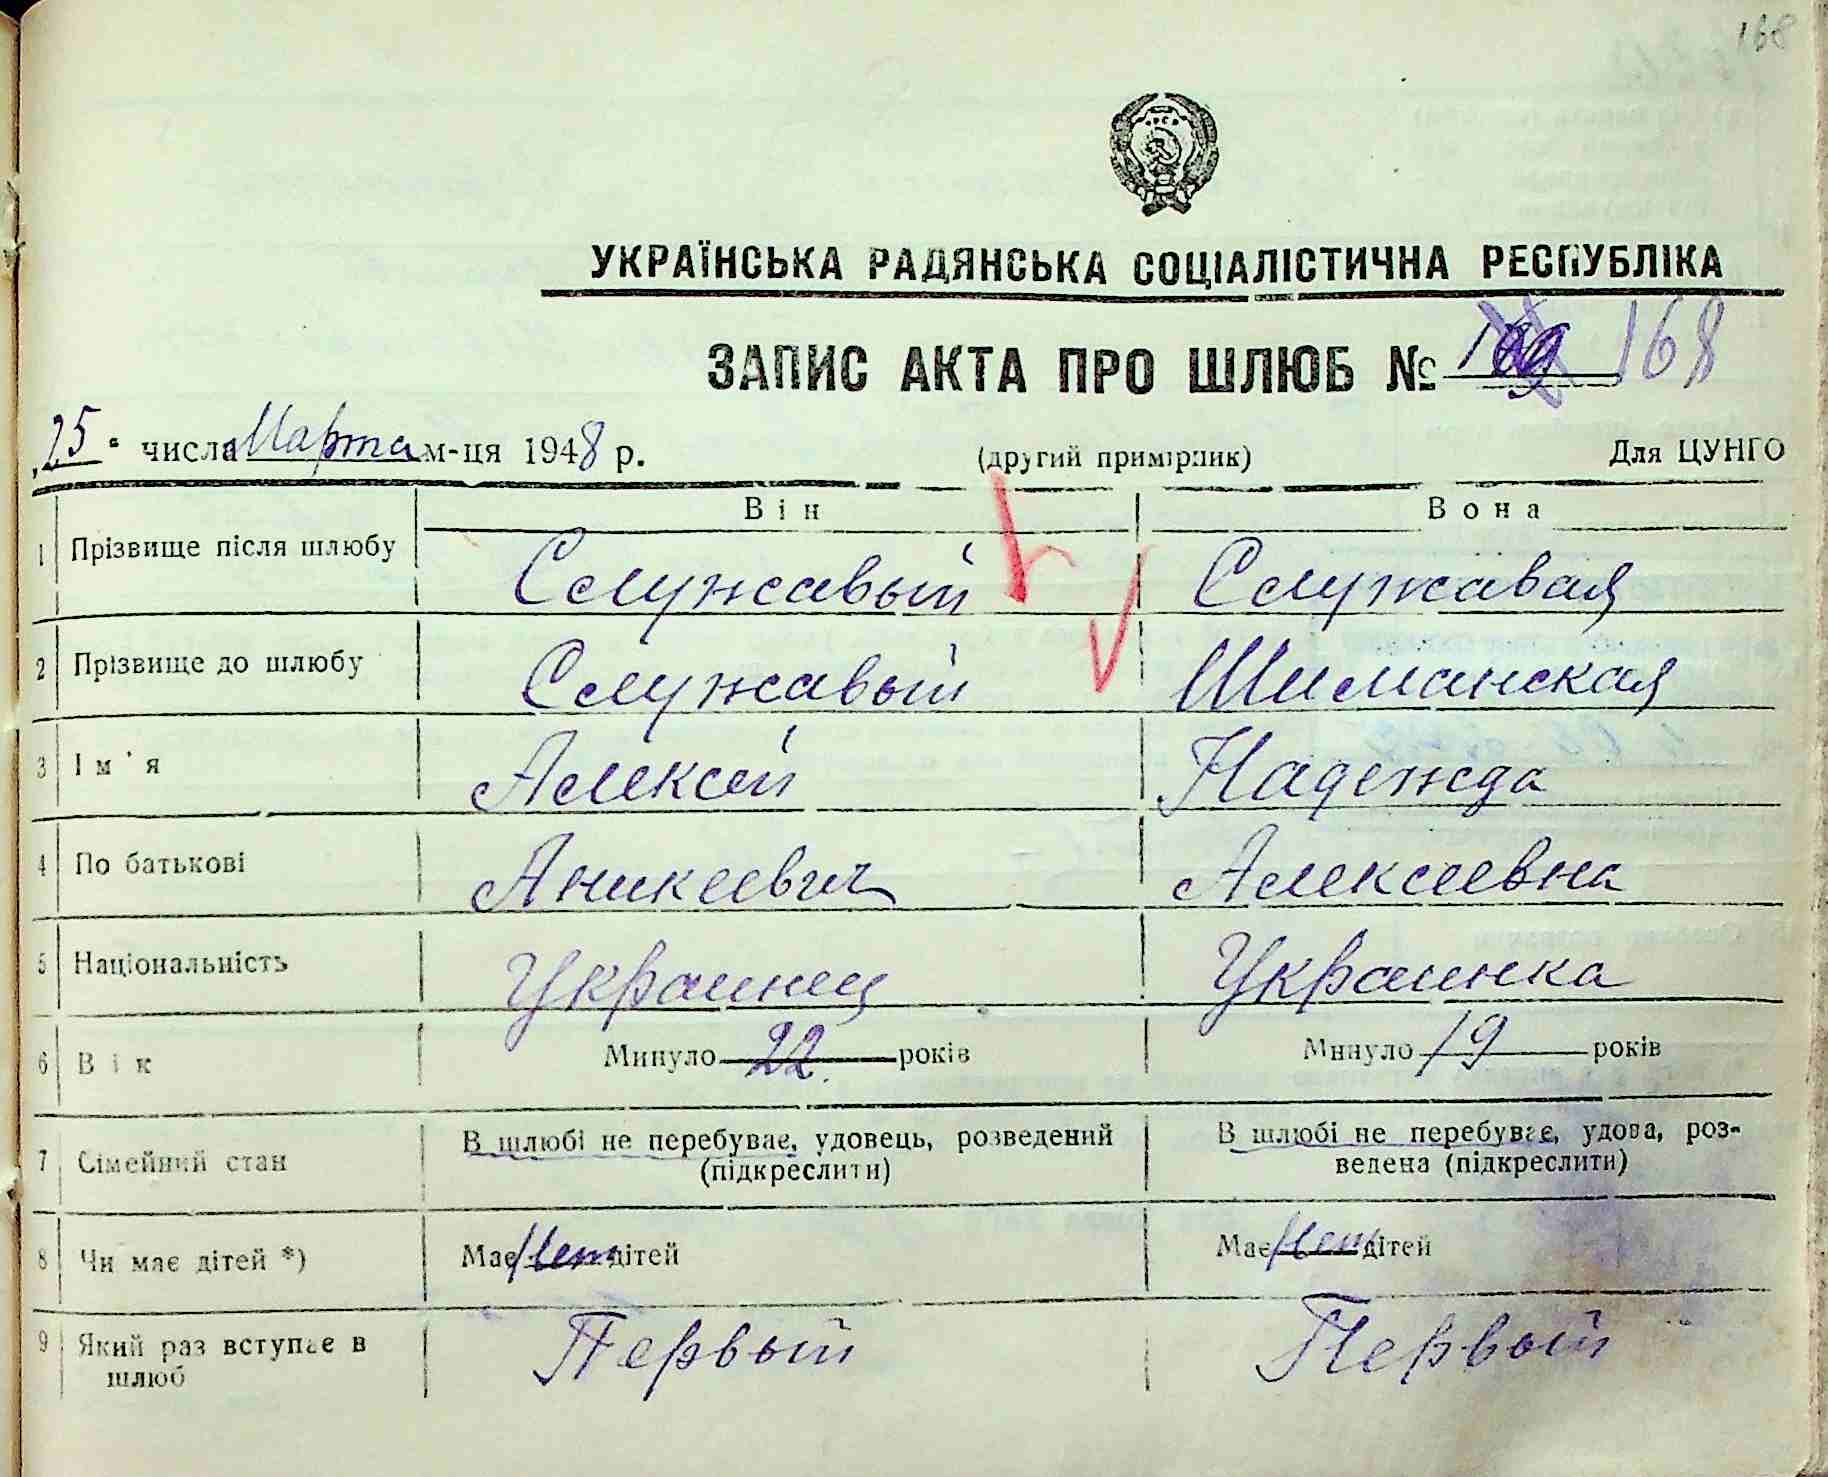 168
УКРАЇНСЬКА РАДЯНСЬКА СОЦІАЛІСТИЧНА РЕСПУБЛІКА
ЗАПИС АКТА ПРО ШЛЮБ № 168
„25“ числа Марта м-ця 1948 р. (другий примірник) Для ЦУНГО
Він Вона
1 Прізвище після шлюбу Служавый Служавая
2 Прізвище до шлюбу Служавый Шиманская
3 Ім'я Алексей Надежда
4 По батькові Аникеевич Алексеевна
5 Національність Украинец Украинка
6 Вік Минуло 22 років Минуло 19 років
7 Сімейний стан В шлюбі не перебуває, удовець, розведений В шлюбі не перебуває, удова, роз-
(підкреслити) ведена (підкреслити)
8 Чи має дітей *) Має Нет дітей Має Нет дітей
9 Який раз вступає в Первый Первый
шлюб